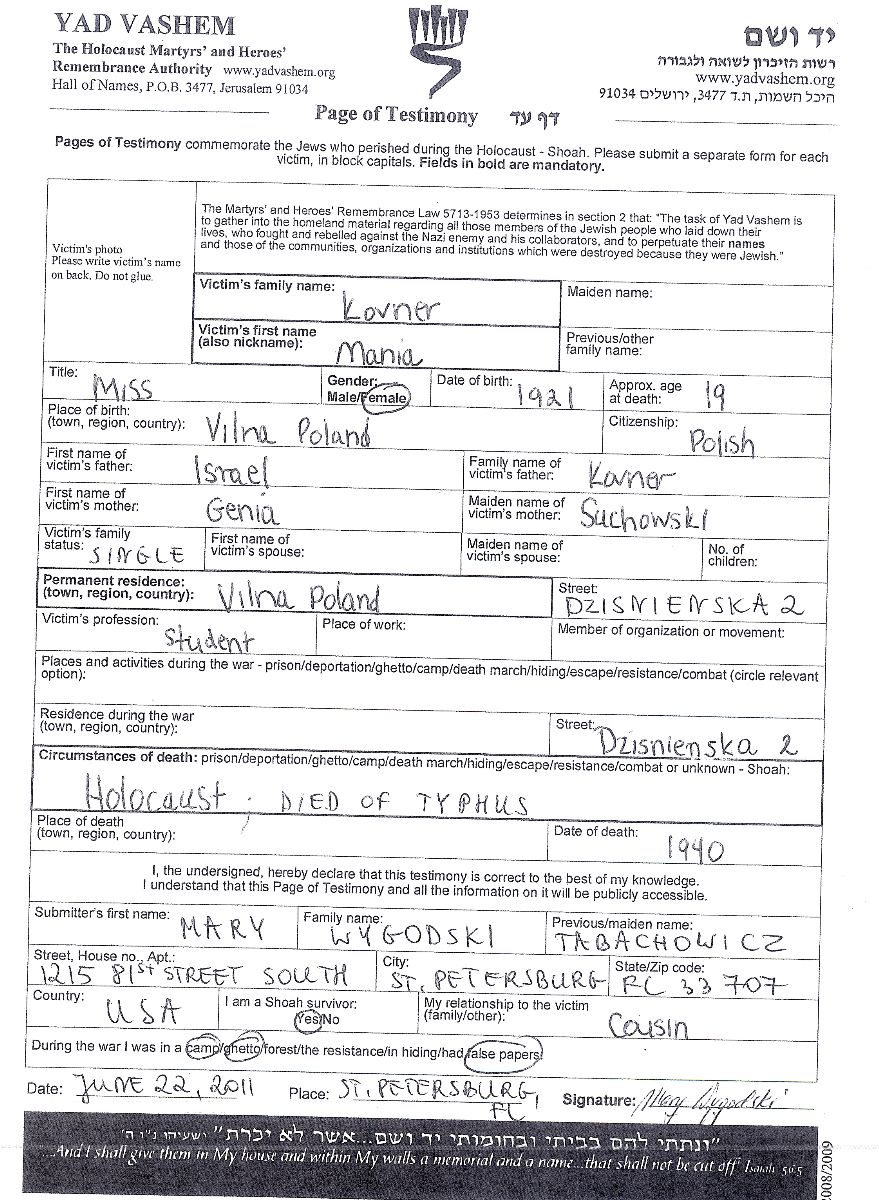 YAD VASHEM
The Holocaust Martyrs' and Heroes'
Remembrance Authority www.yadvashem.org
Hall of Names, P.O.B. 3477, Jerusalem 91034
יד ושם
רשות הזיכרון לשואה ולגבורה
www.yadvashem.org
היכל השמות, ת.ד 3477, ירושלים 91034
Page of Testimony דף עד
Pages of Testimony commemorate the Jews who perished during the Holocaust - Shoah. Please submit a separate form for each
victim, in block capitals. Fields in bold are mandatory.
Victim's photo
Please write victim's name
on back. Do not glue.
The Martyrs' and Heroes' Remembrance Law 5713-1953 determines in section 2 that: "The task of Yad Vashem is
to gather into the homeland material regarding all those members of the Jewish people who laid down their
lives, who fought and rebelled against the Nazi enemy and his collaborators, and to perpetuate their names
and those of the communities, organizations and institutions which were destroyed because they were Jewish."
Victim's family name: Kovner
Maiden name:
Victim's first name
(also nickname): Mania
Previous/other
family name:
Title: MISS
Gender:
Male/Female
Date of birth: 1921
Approx. age
at death: 19
Place of birth:
(town, region, country): Vilna Poland
Citizenship: Polish
First name of
victim's father: Israel
Family name of
victim's father: Kovner
First name of
victim's mother: Genia
Maiden name of
victim's mother: Suchowski
Victim's family
status: SINGLE
First name of
victim's spouse:
Maiden name of
victim's spouse:
No. of
children:
Permanent residence:
(town, region, country): Vilna Poland
Street:
DZISNIENSKA 2
Victim's profession: Student
Place of work:
Member of organization or movement:
Places and activities during the war - prison/deportation/ghetto/camp/death march/hiding/escape/resistance/combat (circle relevant
option):
Residence during the war
(town, region, country):
Street: Dzisnienska 2
Circumstances of death: prison/deportation/ghetto/camp/death march/hiding/escape/resistance/combat or unknown - Shoah:
Holocaust; DIED OF TYPHUS
Place of death
(town, region, country):
Date of death: 1940
I, the undersigned, hereby declare that this testimony is correct to the best of my knowledge.
I understand that this Page of Testimony and all the information on it will be publicly accessible.
Submitter's first name: MARY
Family name: WYGODSKI
Previous/maiden name:
TABACHOWICZ
Street, House no., Apt.:
1215 81st STREET SOUTH
City:
ST. PETERSBURG
State/Zip code:
FL 33707
Country: USA
I am a Shoah survivor:
Yes/No
My relationship to the victim
(family/other): Cousin
During the war I was in a camp/ghetto/forest/the resistance/in hiding/had false papers
Date: JUNE 22, 2011 Place: ST. PETERSBURG, FL Signature: Mary Wygodski
"ונתתי להם בביתי ובחומותי יד ושם...אשר לא יכרת" ישעיהו נ"ו ה'
...And I shall give them in My house and within My walls a memorial and a name...that shall not be cut off Isaiah 56:5
008/2009